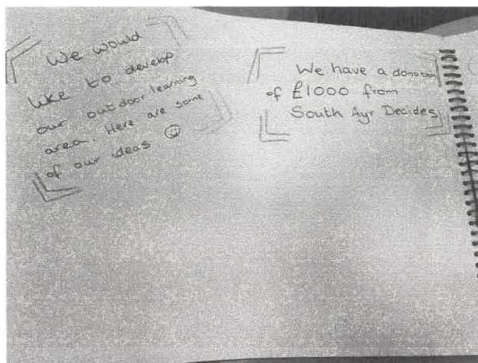 We would
like to develop
our outdoor learning
area. Here are some
of our ideas ☺
We have a donation
of £1000 from
South Ayr Decides